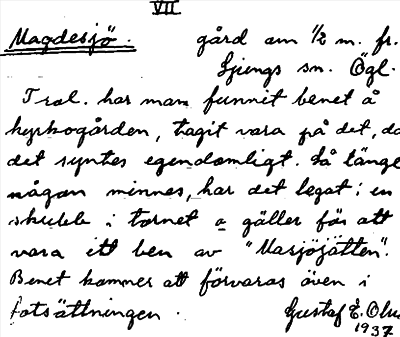 VII
Magdesjö. gård om 1/2 m. fr.
Ljungs sn. Ögl.
Trol. har man funnit benet å
kyrkogården, tagit vara på det, då
det syntes egendomligt. Så länge
någon minnes, har det legat i en
skrubb i tornet o gäller för att
vara ett ben av "Masjöjätten".
Benet kommer att förvaras även i
fortsättningen.
Gustaf E.
1937